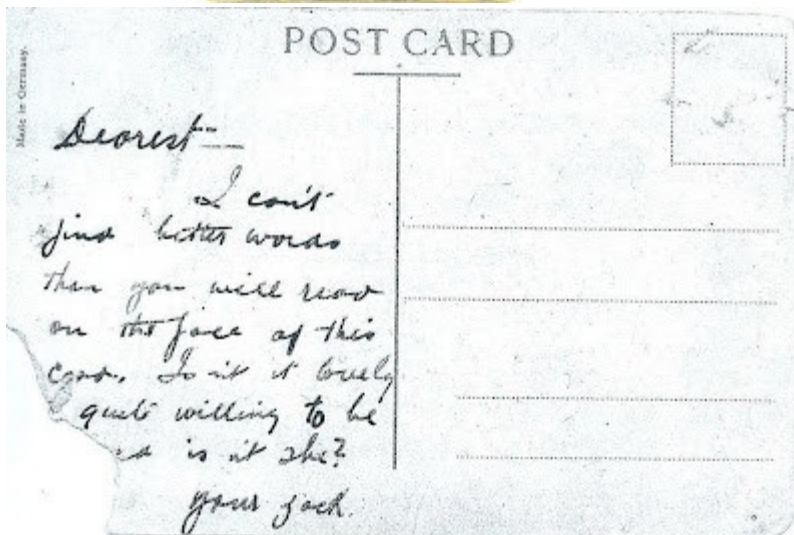 POST CARD
Made in Germany.
Dearest—
I can't
find better words
than you will read
on the face of this
card. Isn't it lovely
quite willing to be
is it she?
your Jack.